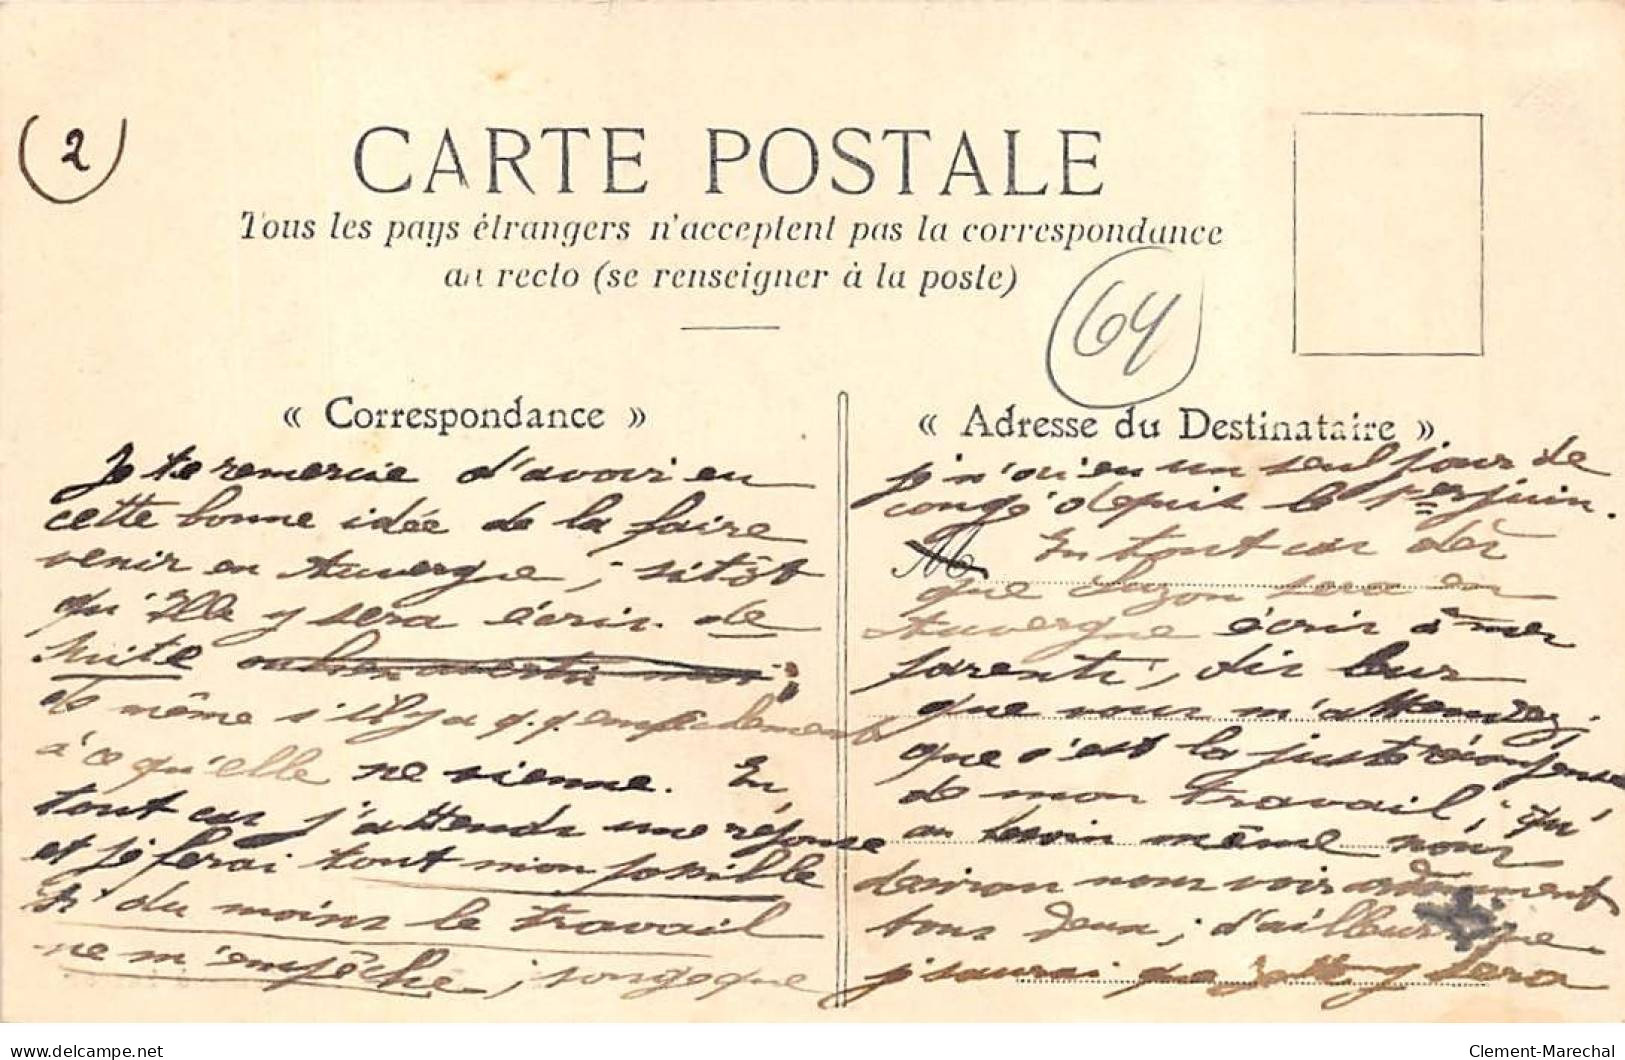 2
CARTE POSTALE
Tous les pays étrangers n'acceptent pas la correspondance
au recto (se renseigner à la poste)
64
« Correspondance »
Je te remercie d'avoir eu
cette bonne idée de la faire
venir en Auvergne ; sitôt
qu'Elle y sera écris de
suite ou bien avertis moi ;
de même s'il y a q.q. empêchement
à ce qu'elle ne vienne. En
tout cas j'attends une réponse
et je ferai tout mon possible
si du moins le travail
ne m'empêche ; songe que
« Adresse du Destinataire »
je n'ai eu un seul jour de
congé depuis le 1er juin.
M
En tout cas dès
que Suzon sera en
Auvergne écris à mes
parents, dis leur
que vous m'attendez,
que c'est la juste récompense
de mon travail ; qu'
au besoin même nous
désirons nous voir
tous deux ; d'ailleurs que
j'saurai que y sera
delcampe.net
Clement-Marechal